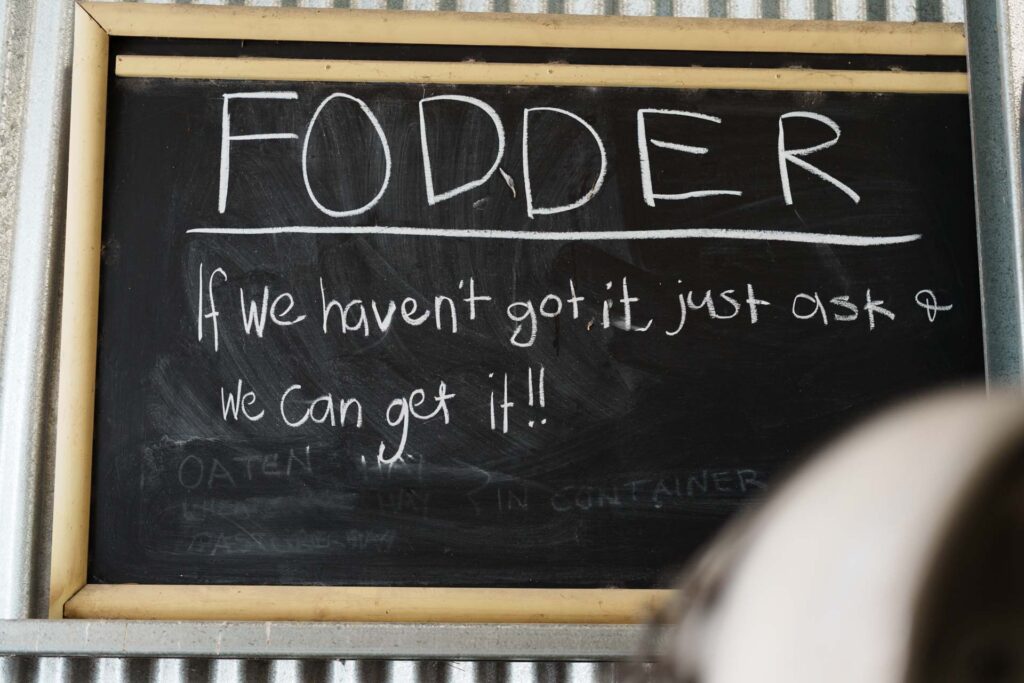 FODDER
If we haven't got it just ask &
we can get it!!
OATEN HAY
HAY } IN CONTAINER